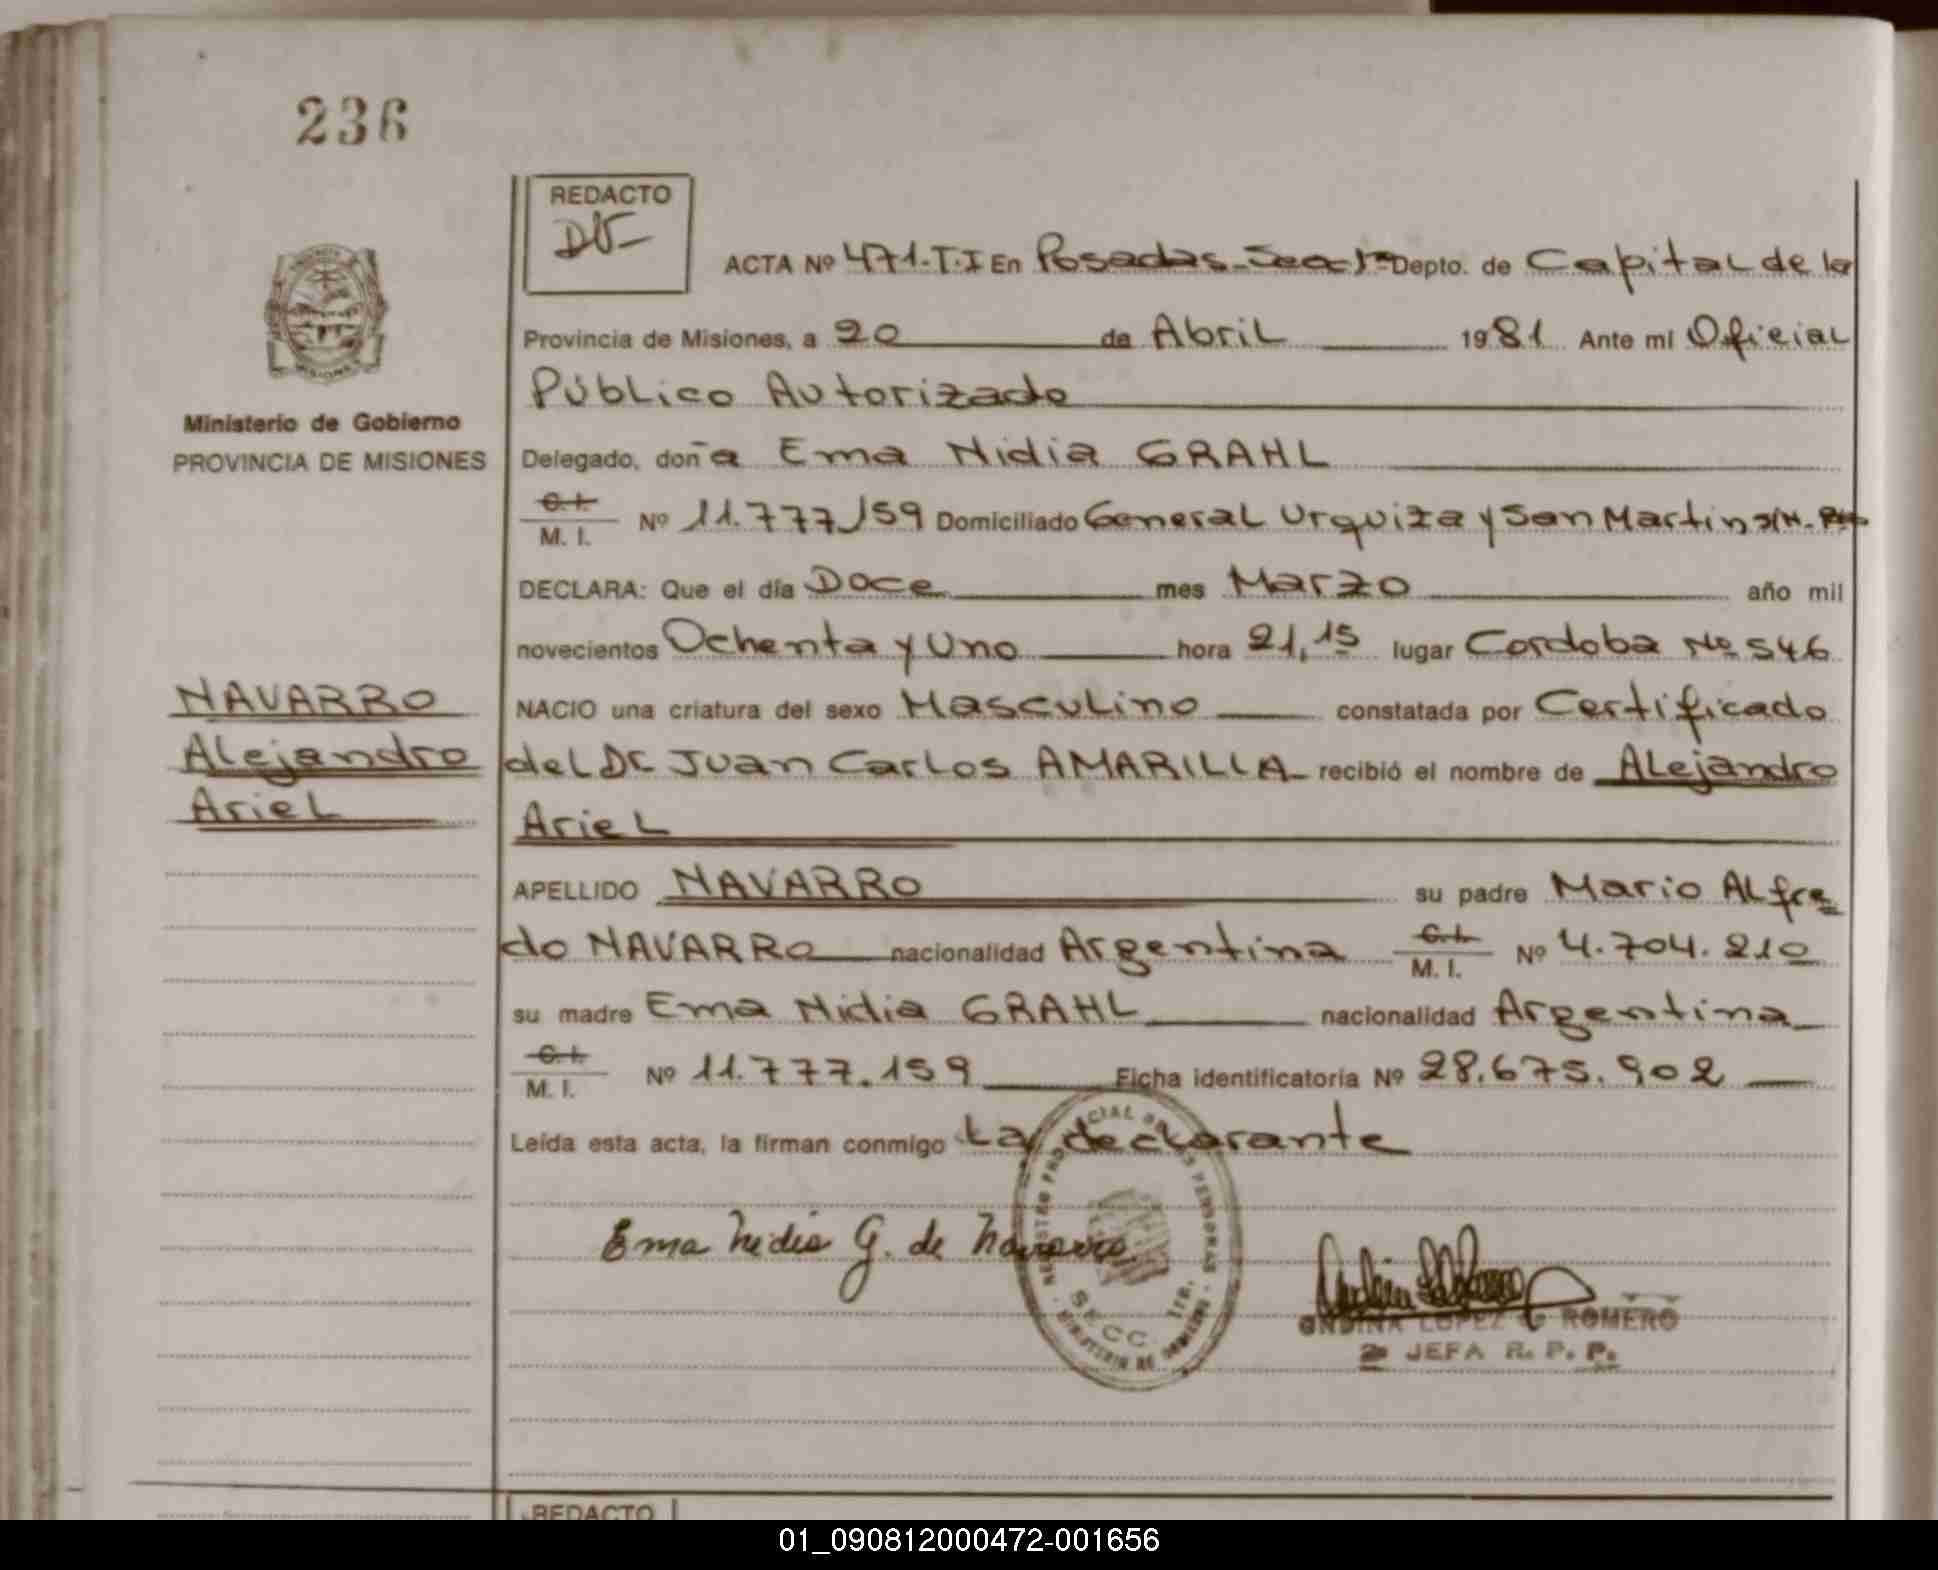 236
REDACTO
DV-
ACTA Nº 471-T.I En Posadas-Secc 1ª Depto. de Capital de la
Provincia de Misiones, a 20 de Abril 1981 Ante mi Oficial
Público Autorizado
Ministerio de Gobierno
PROVINCIA DE MISIONES
Delegado, doña Ema Nidia GRAHL
C.I.
M. I. Nº 11.777.159 Domiciliado General Urquiza y San Martin S/N-
DECLARA: Que el día Doce mes Marzo año mil
novecientos Ochenta y Uno hora 21,15 lugar Cordoba Nº 546
NAVARRO
Alejandro
Ariel
NACIO una criatura del sexo Masculino constatada por Certificado
del Dr Juan Carlos AMARILLA recibió el nombre de Alejandro
Ariel
APELLIDO NAVARRO su padre Mario Alfre
do NAVARRO nacionalidad Argentina C.I. M. I. Nº 4.704.210
su madre Ema Nidia GRAHL nacionalidad Argentina
C.I.
M. I. Nº 11.777.159 Ficha identificatoria Nº 28.675.902
Leída esta acta, la firman conmigo La declarante
Ema Nidia G. de Navarro
REGISTRO PROVINCIAL DE LAS PERSONAS
SECC. 1ra.
MINISTERIO DE GOBIERNO
ONDINA LOPEZ D ROMERO
2ª JEFA R. P. P.
REDACTO
01_090812000472-001656